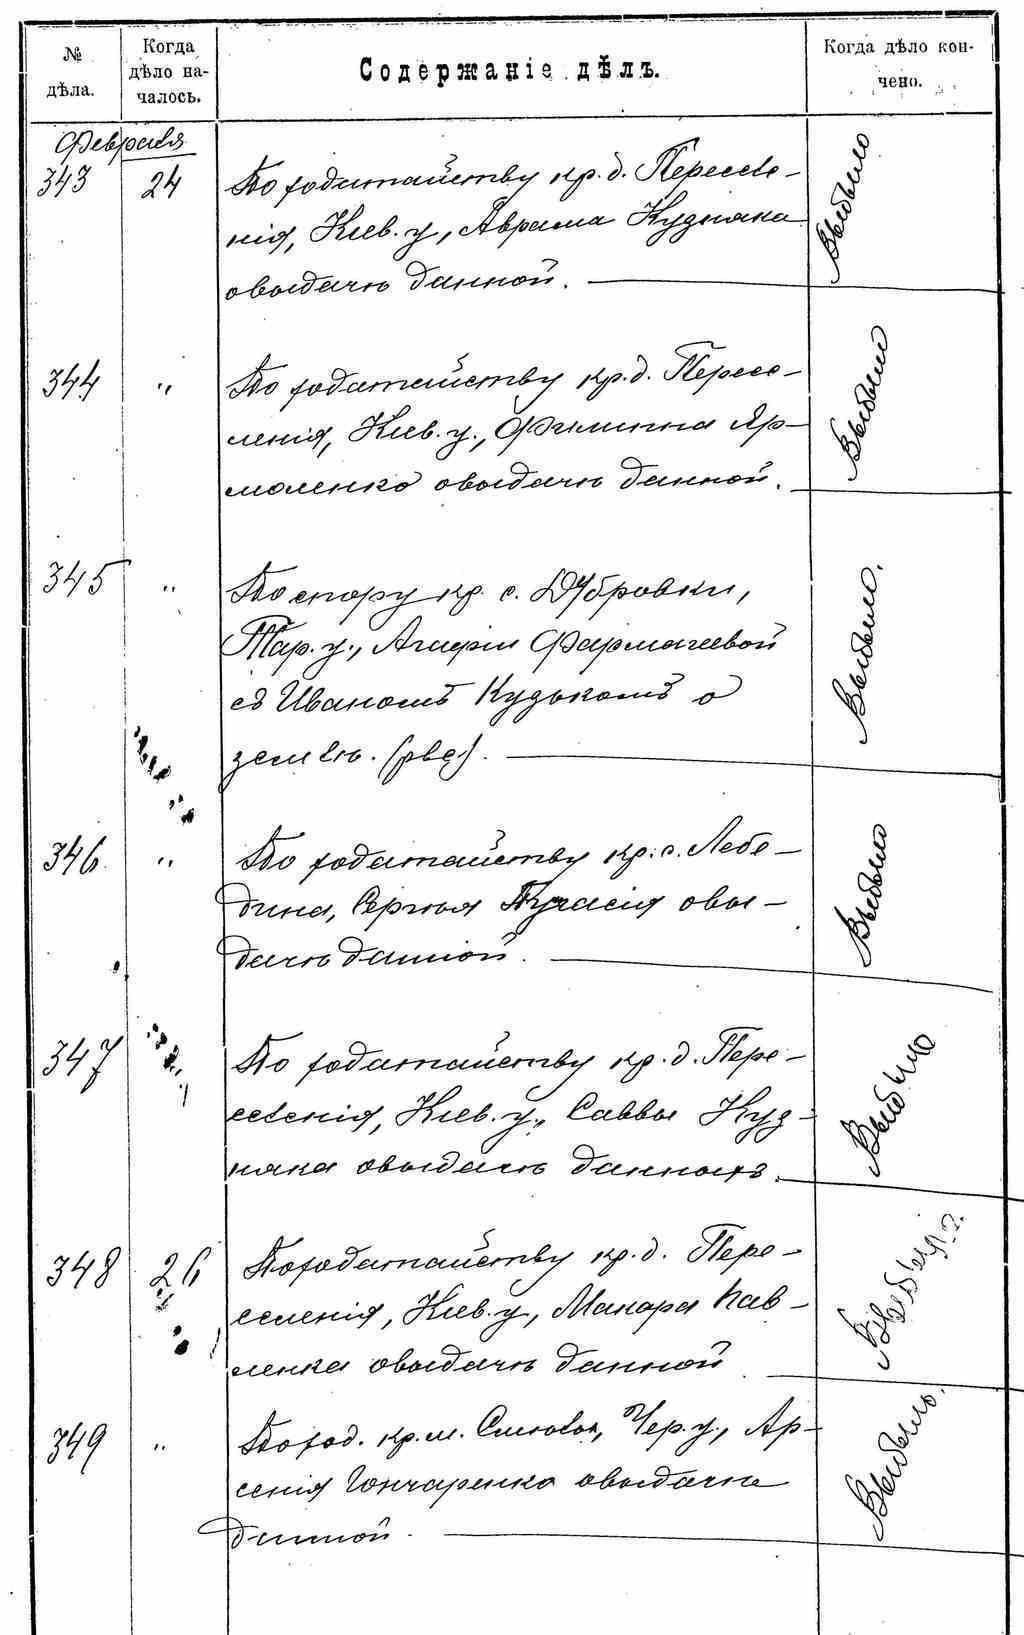 № дѣла.
Когда дѣло началось.
Содержаніе дѣлъ.
Когда дѣло кончено.
Февраля
343 24 По ходатайству кр. д. Переселе-
нія, Кіев. у., Аврама Кудняка
о выдачѣ данной. Выбыло
344 " По ходатайству кр. д. Пересе-
ленія, Кіев. у., Филиппа Яр-
моленко о выдачѣ данной. Выбыло
345 " По спору кр. с. Дубровки,
Тар. у., Агафіи Фармагеевой
съ Иваномъ Кудькомъ о
землѣ. Выбыло.
346 " По ходатайству кр. с. Лебе-
дина, Сергѣя о вы-
дачѣ данной. Выбыло
347 По ходатайству кр. д. Пере-
селенія, Кіев. у., Саввы Куд-
няка о выдачѣ данныхъ. Выбыло
348 26 По ходатайству кр. д. Пере-
селенія, Кіев. у., Макара Пав-
ленка о выдачѣ данной
349 " По ход. кр. м. Черк. у., Ар-
сенія Гончаренко о выдачѣ
данной. Выбыло.